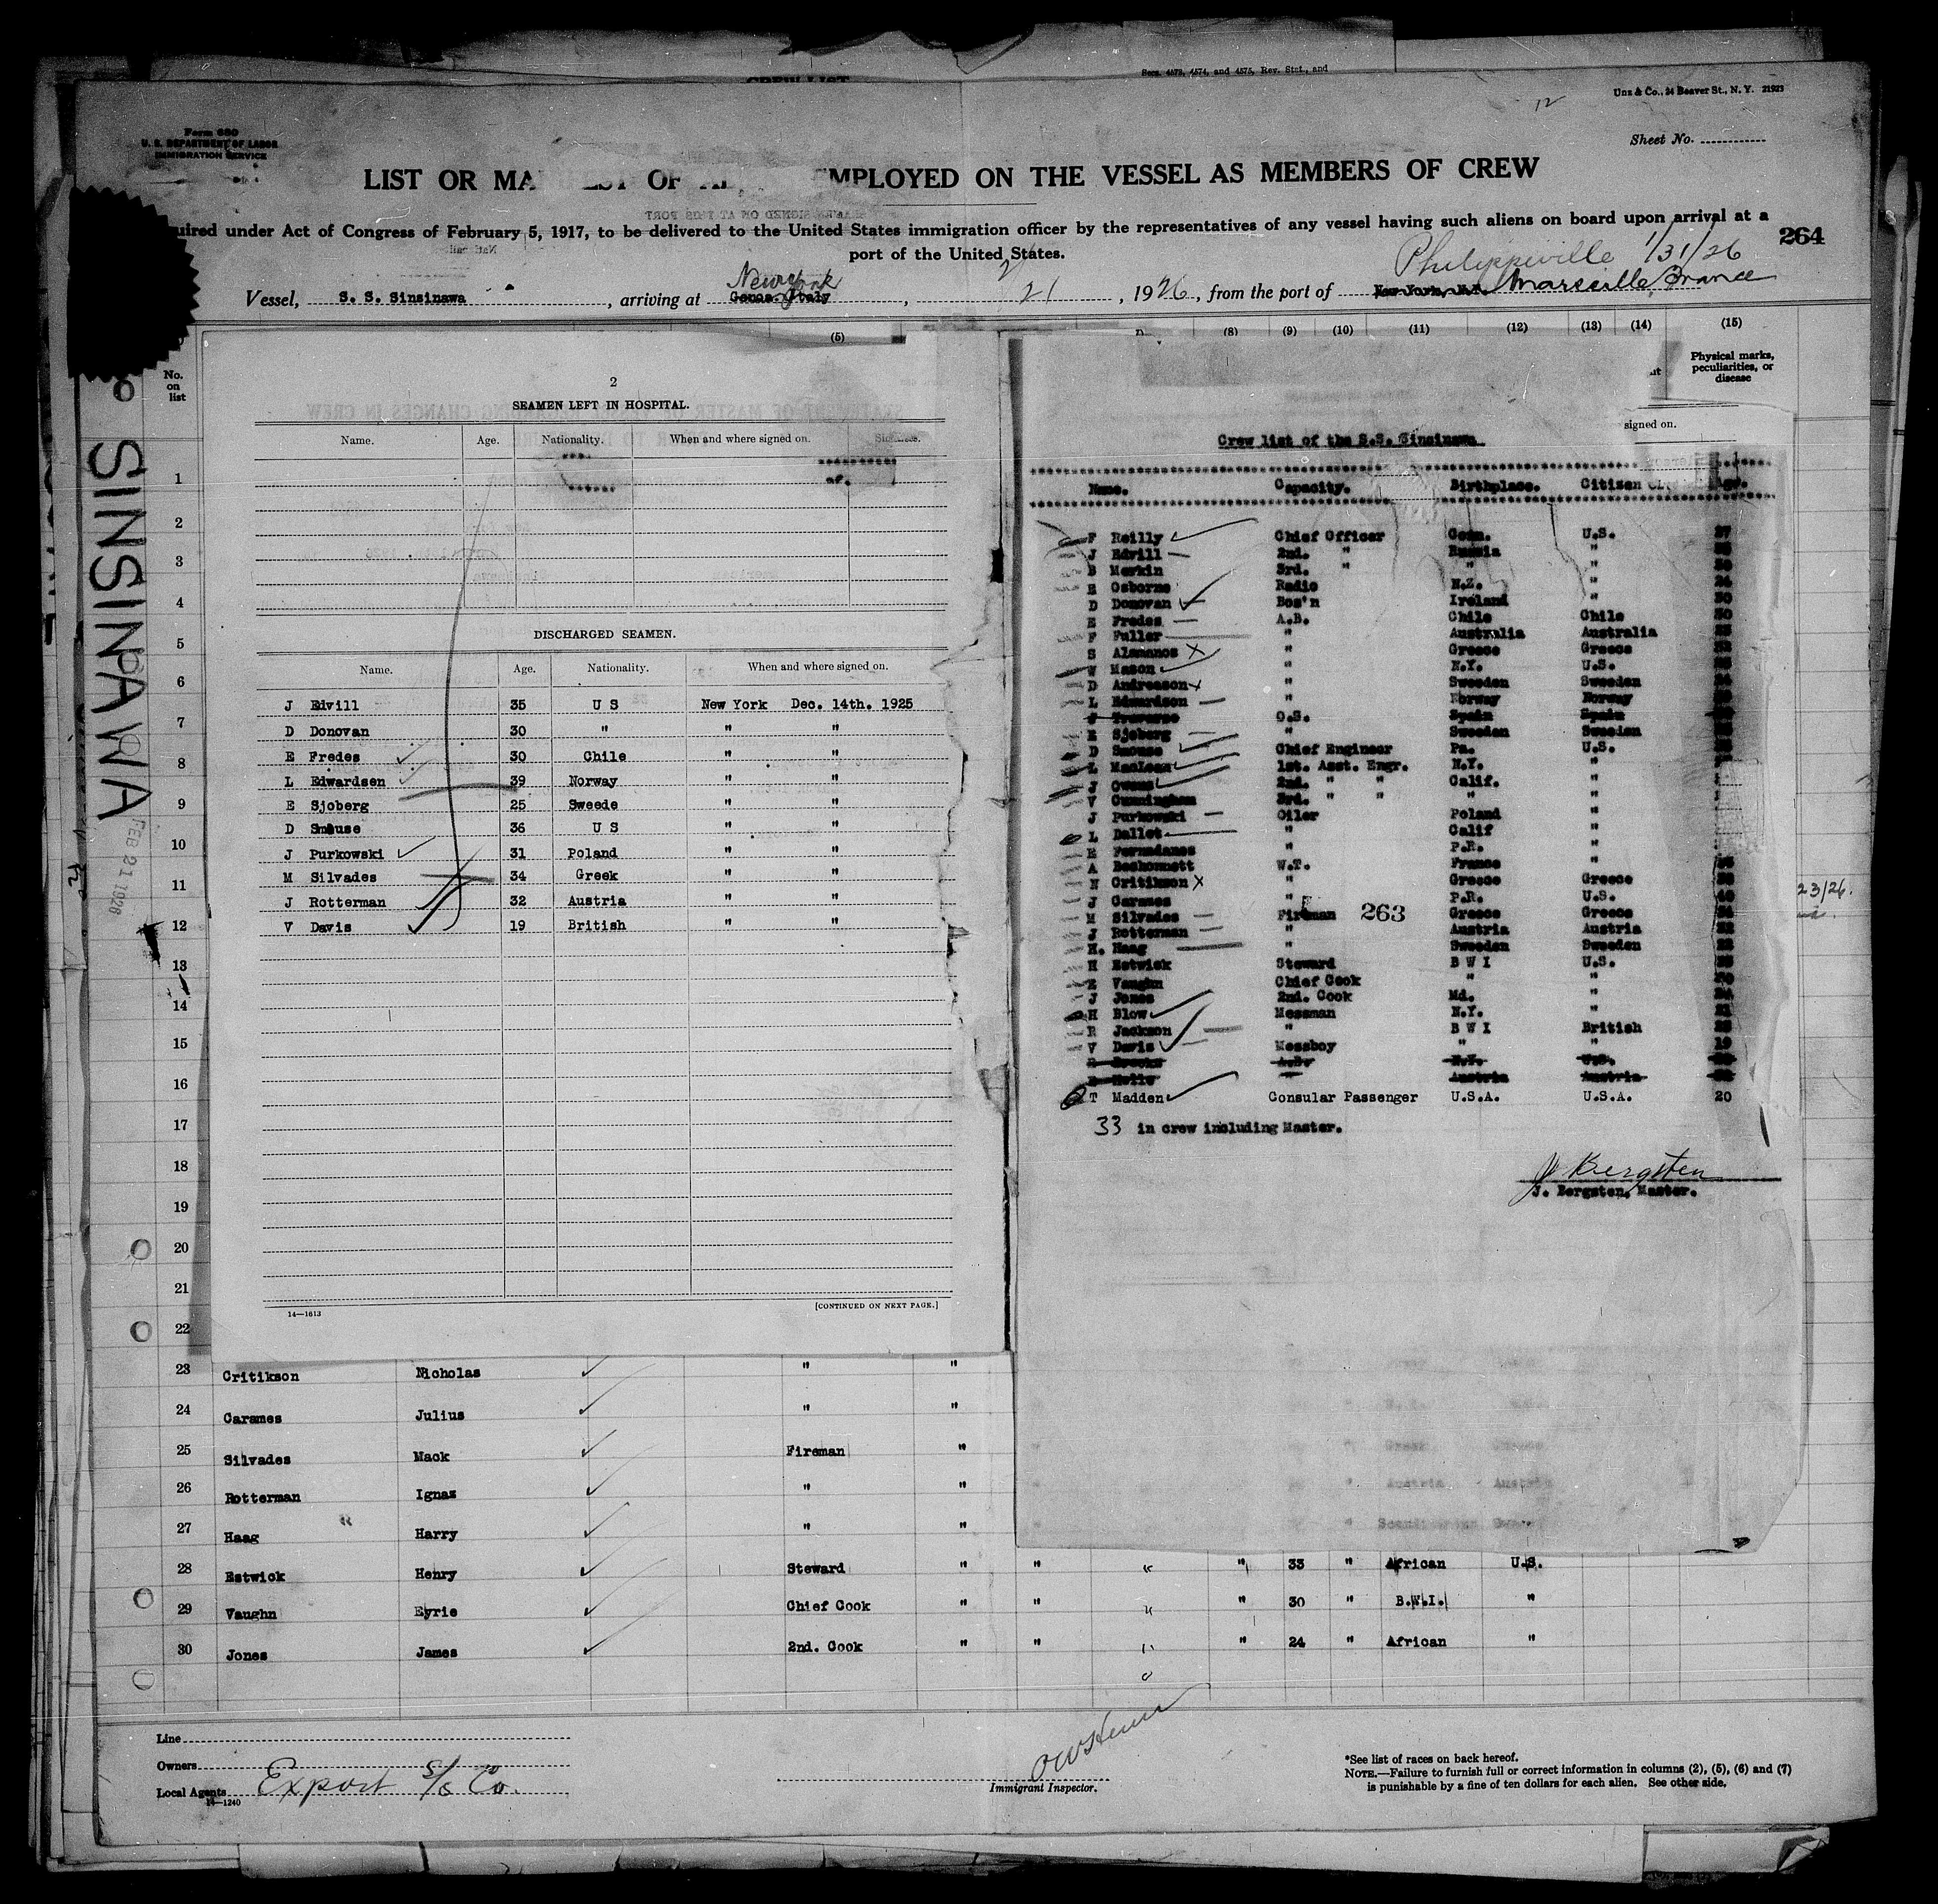 Secs. 4573, 4574, and 4575, Rev. Stat., and
CREW LIST
12
Unz & Co., 24 Beaver St., N. Y. 21923
Form 680
U. S. DEPARTMENT OF LABOR
IMMIGRATION SERVICE
Sheet No.
LIST OR MA OF EMPLOYED ON THE VESSEL AS MEMBERS OF CREW
uired under Act of Congress of February 5, 1917, to be delivered to the United States immigration officer by the representatives of any vessel having such aliens on board upon arrival at a
port of the United States.
264
Philippeville 1/31/26
Vessel, S. S. Sinsinawa, arriving at New York Genoa Italy, 2/21, 1926, from the port of New York, N.Y. Marseille, France
(5) (8) (9) (10) (11) (12) (13) (14) (15)
No. on list
Physical marks, peculiarities, or disease
SINSINAWA
FEB 21 1926
2
SEAMEN LEFT IN HOSPITAL.
Name. Age. Nationality. When and where signed on. Sickness.
DISCHARGED SEAMEN.
Name. Age. Nationality. When and where signed on.
J Edvill 35 U S New York Dec. 14th. 1925
D Donovan 30 " " "
E Fredes 30 Chile " "
L Edwardsen 39 Norway " "
E Sjoberg 25 Sweede " "
D Smouse 36 U S " "
J Purkowski 31 Poland " "
M Silvades 34 Greek " "
J Rotterman 32 Austria " "
V Davis 19 British " "
14—1613
[CONTINUED ON NEXT PAGE.]
signed on.
Crew list of the S.S. Sinsinawa
Name. Capacity. Birthplace. Citizen Age.
F Reilly Chief Officer Conn. U.S. 37
J Edvill 2nd. " Russia "
B Merkin 3rd. " " "
E Osborne Radio N.Z. " 24
D Donovan Bos'n Ireland " 30
E Fredes A.B. Chile Chile 30
F Fuller " Australia Australia
S Alamanos " Greece Greece
W Mason " N.Y. U.S.
D Andreason " Sweden Sweden
L Edwardson " Norway Norway
Traverso O.S. Spain Spain
E Sjoberg " Sweden Sweden
D Smouse Chief Engineer Pa. U.S.
L MacLean 1st. Asst. Engr. N.Y. "
J Owens 2nd. " " Calif. "
V Cunningham 3rd. " " " "
J Purkowski Oiler Poland "
L Ballet " Calif "
E Fernandanes " P.R. "
A Beckonnett W.T. France "
N Critikson " Greece Greece
J Carames " P.R. U.S.
M Silvades Fireman Greece Greece
263
J Rotterman " Austria Austria 32
H. Haag " Sweden Sweden
H Estwick Steward B W I U.S.
E Vaughn Chief Cook " "
J Jones 2nd. Cook Md. "
H Blow Messman N.Y. "
R Jackson " B W I British
V Davis Messboy " " 19
A.B. N.Y. U.S.
Austria Austria
T Madden Consular Passenger U.S.A. U.S.A. 20
33 in crew including Master.
J Bergsten
J. Bergsten, Master.
23/26.
1
2
3
4
5
6
7
8
9
10
11
12
13
14
15
16
17
18
19
20
21
22
23 Critikson Nicholas " "
24 Carames Julius " "
25 Silvades Mack Fireman "
26 Rotterman Ignaz " "
27 Haag Harry " "
28 Estwick Henry Steward " " " " 33 " African U.S.
29 Vaughn Eyrie Chief Cook " " " " 30 " B.W.I. "
30 Jones James 2nd. Cook " " " " 24 " African "
Line
Owners
Local Agents Export S/S Co.
14—1240
Immigrant Inspector.
*See list of races on back hereof.
NOTE.—Failure to furnish full or correct information in columns (2), (5), (6) and (7)
is punishable by a fine of ten dollars for each alien. See other side.